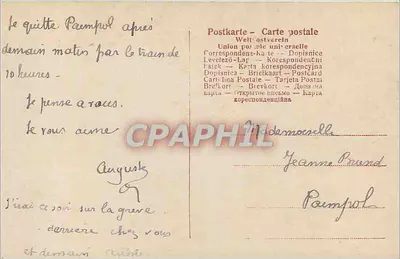 Je quitte Paimpol après
demain matin par le train de
10 heures.
Je pense a vous.
Je vous aime
Auguste
J'irai ce soir sur la greve
derrière chez vous
et demain
Postkarte - Carte postale
Weltpostverein
Union postale universelle
Correspondenzkarte - Dopisnice
Levelező-Lap - Korespondentní
lístek - Karta korespondencyjna
Dopisnica - Briefkaart - Postcard
Cartolina Postale - Tarjeta Postal
Brefkort - Brevkort - Дописна
карта - Открытое письмо - Карта
кореспонденційна
CPAPHIL
Mademoiselle
Jeanne
Paimpol